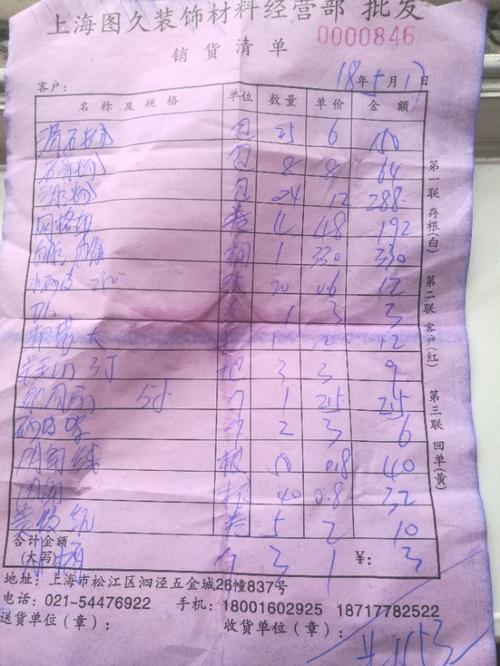 上海图久装饰材料经营部 批发
销货清单 0000846
客户： 18年5月17日
名称及规格 单位 数量 单价 金额
滑石粉 包 25 6 150
石膏粉 包 8 8 64
包 24 12 288
网格布 卷 4 48 192
桶 1 330 330
水砂皮 张 20 0.6 12
1 3 3
1 12 12
把 3 3 9
5寸 个 1 25 25
个 2 3 6
阴角线 根 50 0.8 40
阳角 根 40 0.8 32
美纹纸 卷 5 2 10
合计金额
(大写) 个 3 1 ¥: 3
第一联 存根(白) 第二联 客户(红) 第三联 回单(黄)
地址：上海市松江区泗泾五金城26幢837号
电话：021-54476922 手机：18001602925 18717782522
送货单位（章）： 收货单位（章）：